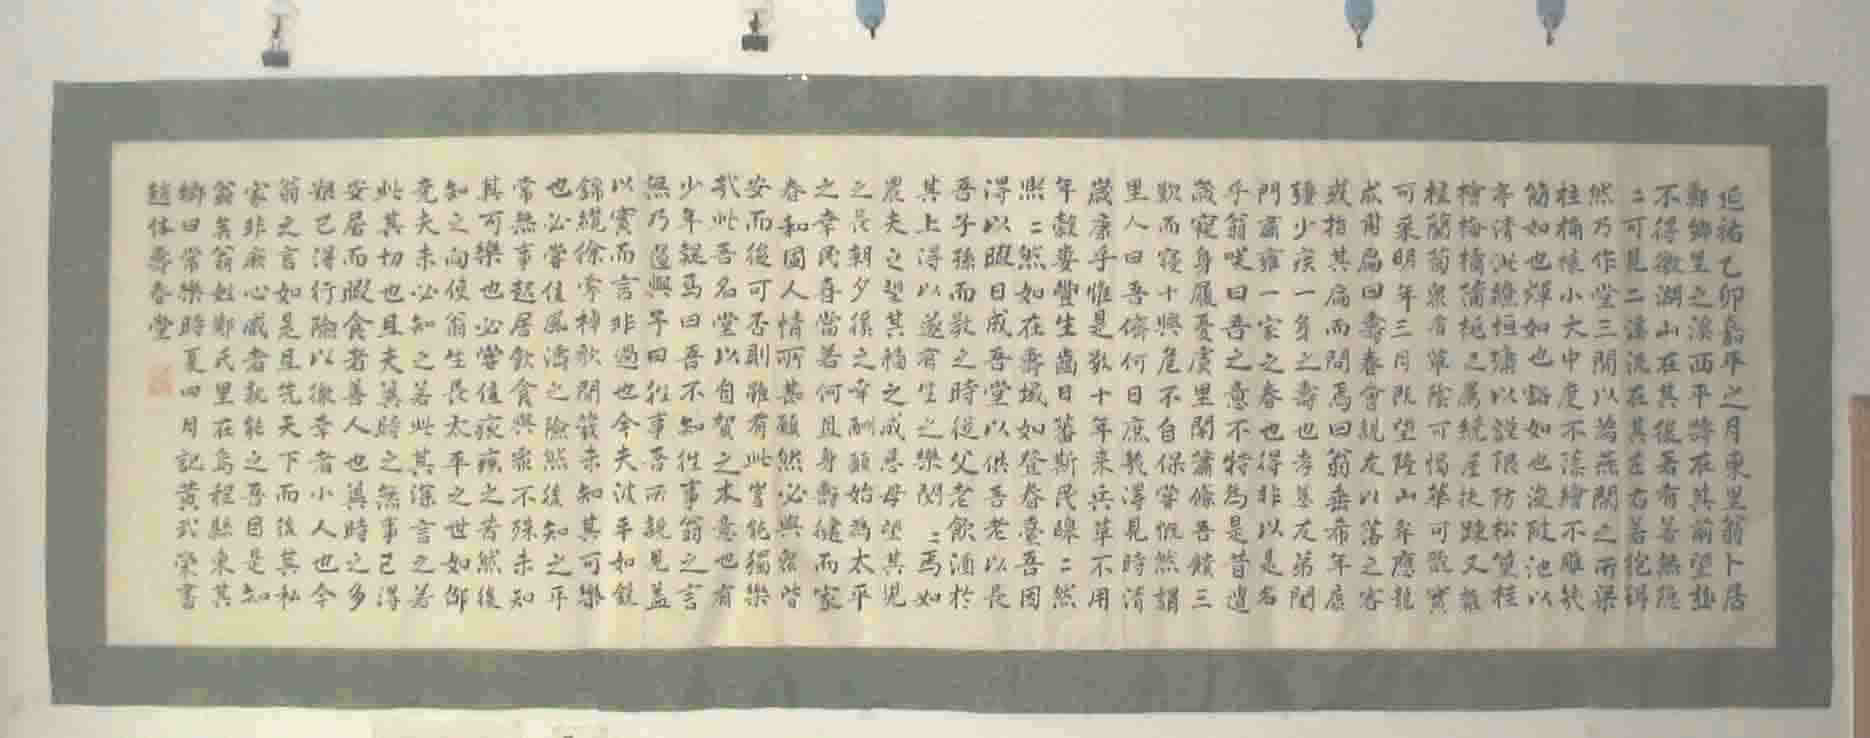 延祐乙卯嘉平之月東里翁卜居
鄭鄉里之溪西平時在其前望極
不得徹湖山在其後若有若無隱
二可見二溪流在其左右若抱珥
然乃作堂三間以為燕閒之所梁
柱桷榱小大中度不藻繪不雕幾
簡如也煇如也谿如也浚陂池以
亭清泚繚垣墉以謹限防松篁桂
檜梅橘蒲梔之屬繞屋扶踈又雜
植蘭菊眾卉葉陰可憩華可翫實
可采明年三月既望隆山牟應龍
成甫扁曰壽春會親友以落之客
或指其扁而問焉曰翁垂希年康
彊少疾一身之壽也孝慈友弟閨
門肅雍一家之春也得非以是名
乎翁咲曰吾之意不特為是昔遭
歲寇身履憂虞里閈蕭條吾饋三
歎而寢十興危不自保嘗慨然謂
里人曰吾儕何日庶幾得見時清
歲康乎惟是數十年來兵革不用
年穀婁豐生齒日蕃斯民皞二然
熙二然如在壽域如登春臺吾因
得以暇日成吾堂以供吾老以長
吾子孫而敬之時從父老飲酒於
其上得以遂有生之樂閔二焉如
農夫之望其福之成恩母望其兒
之長朝夕俟之幸酬願始為太平
之幸民存當若何且身壽健而家
春和固人情所甚願然必與眾皆
安而後可否則雖有此豈能獨樂
哉此吾名堂以自賀之本意也有
少年疑焉曰吾不知往事翁之言
無乃過與予曰往事吾所親見蓋
以實而言非過也今夫波平如鏡
錦纜徐牽棹歌間發未知其可樂
也必嘗佳風濤之險然後知之平
常無事起居飲食與眾不殊未知
其可樂也必嘗值疾疢之苦然後
知之向使翁生長太平之世如邵
堯夫未必知之若此其深言之若
此其切也且夫異時之無事已得
安居而暇食者善人也異時之多
艱已得行險以徼幸者小人也今
翁之言如是且先天下而後其私
家非廠心戚者孰能之吾因是知
翁矣翁姓鄭氏里在烏程縣東其
鄉曰常樂時夏四月記黃武榮書
趙体壽春堂